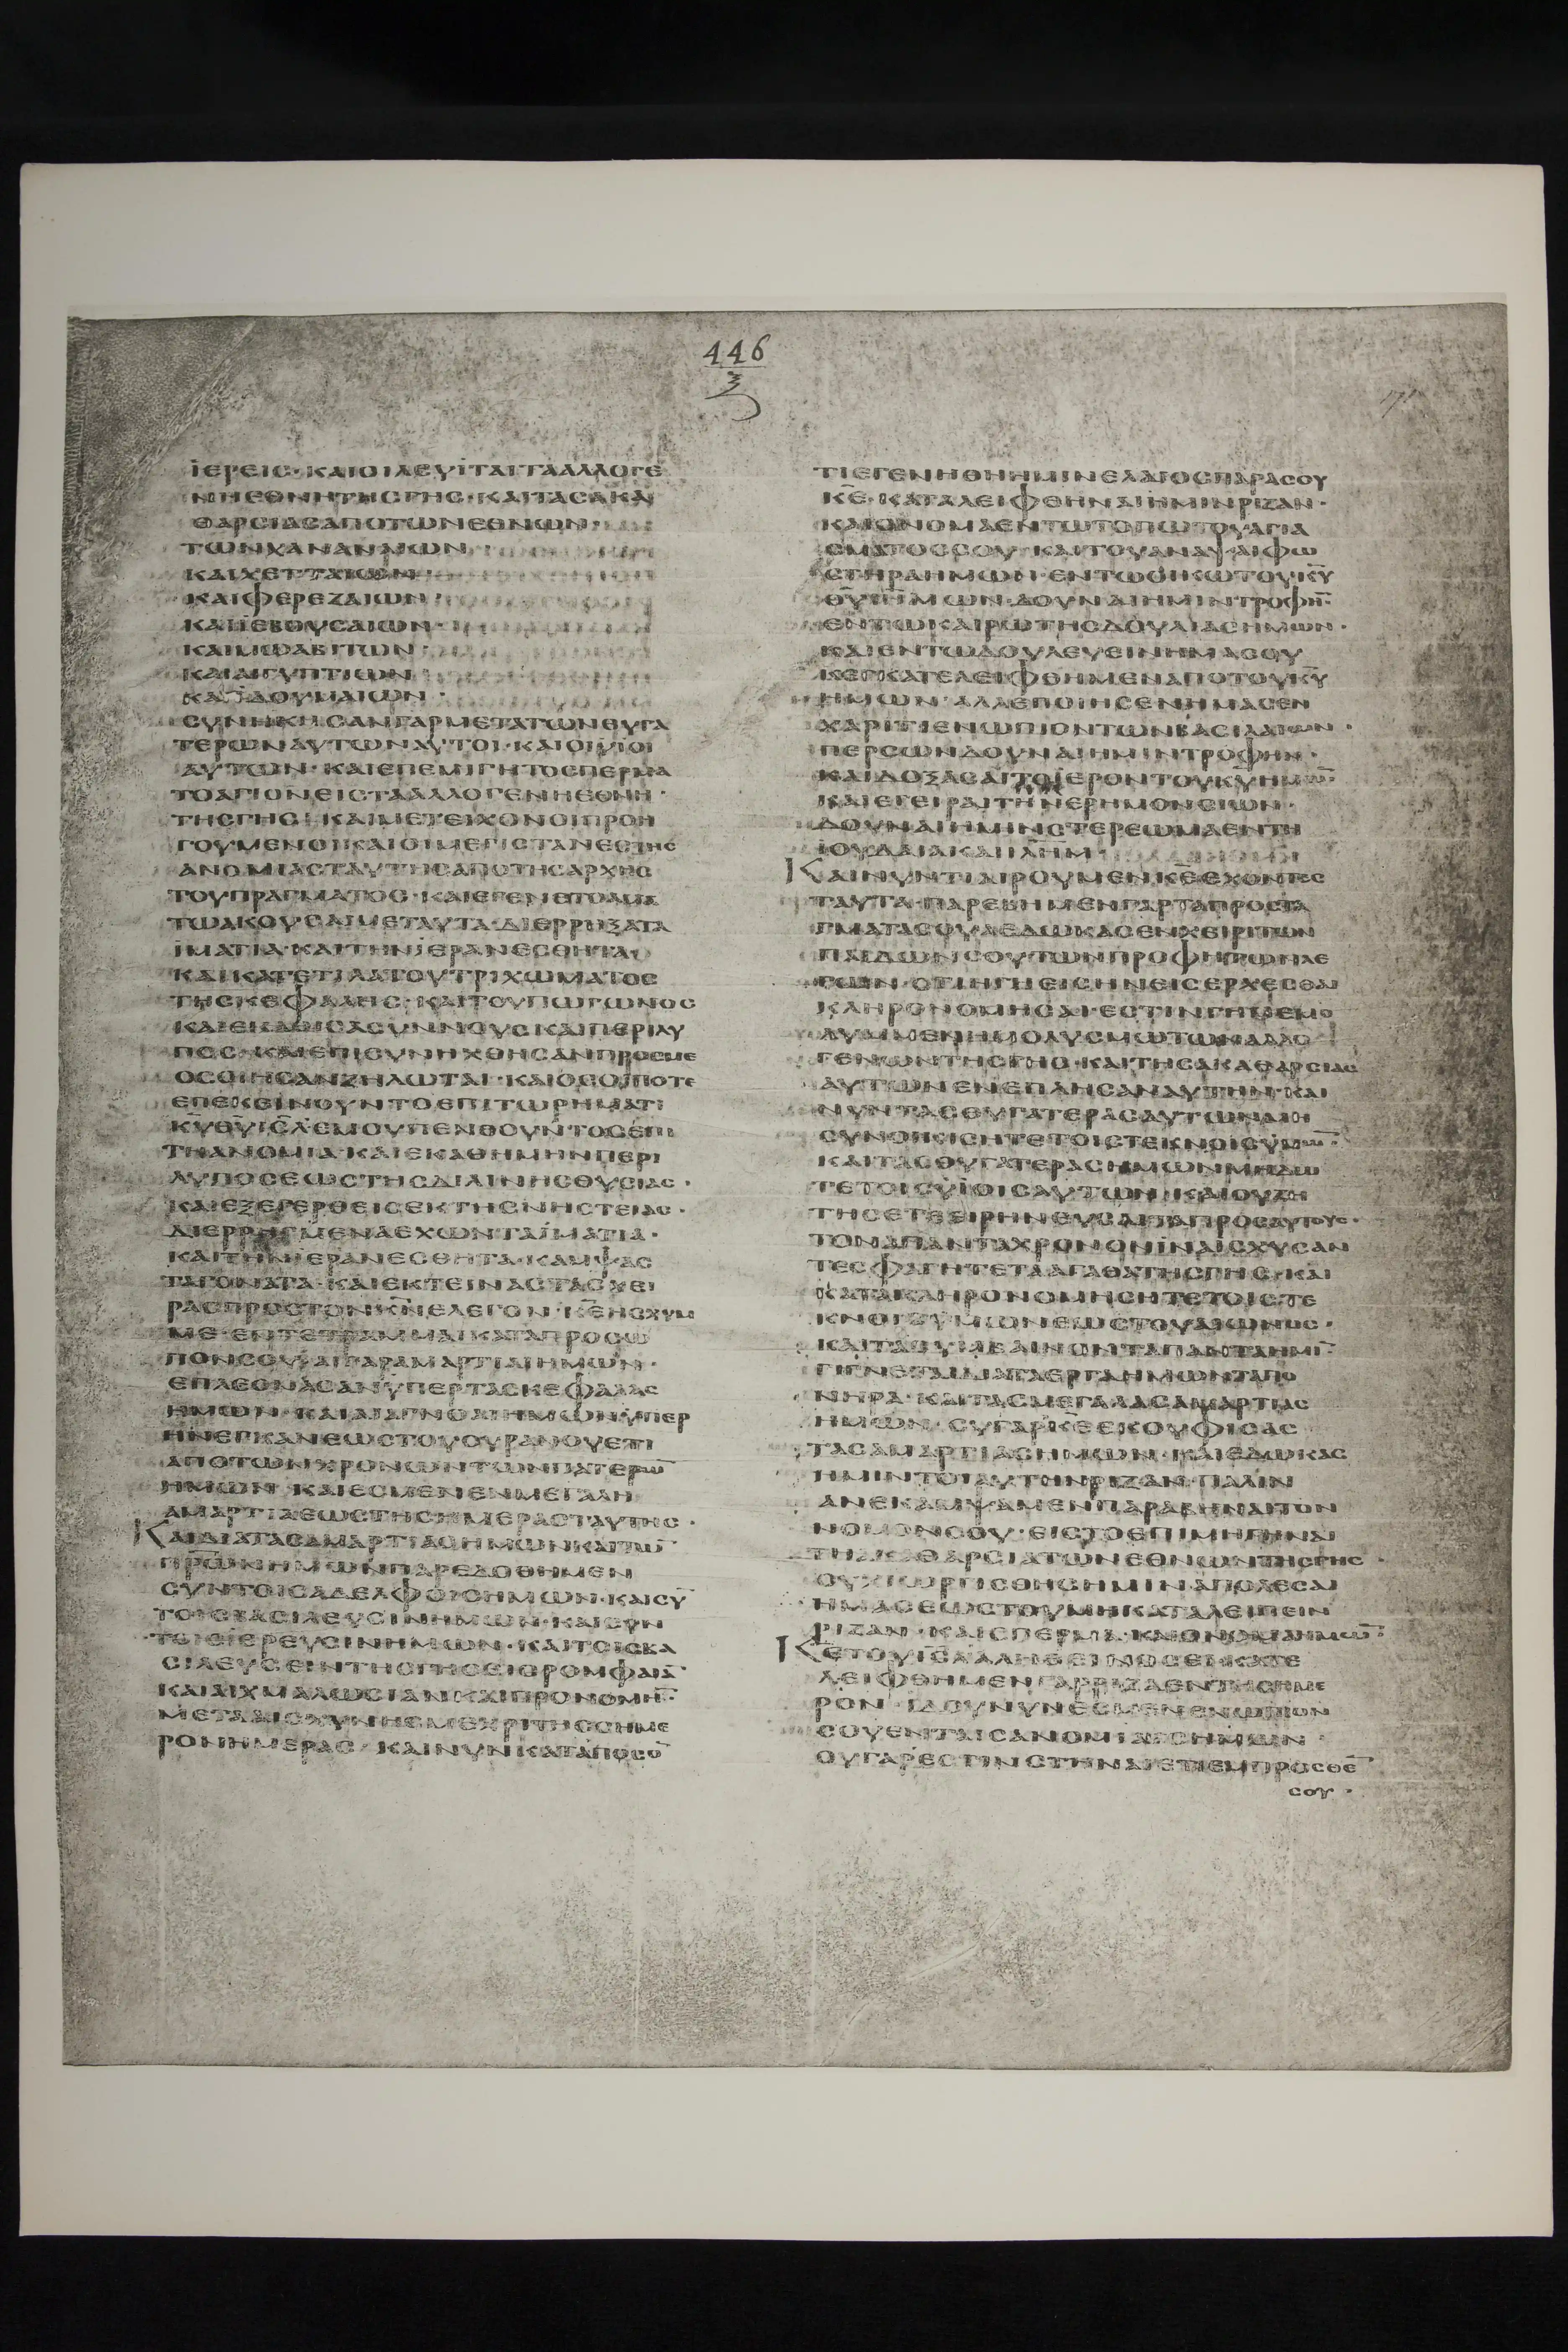 446
ΪΕΡΕΙС · ΚΑΙΟΙΛΕΥΪΤΑΙΤΑΑΛΛΟΓΕ
ΝΗΕΘΝΗΤΗСΓΗС · ΚΑΙΤΑСΑΚΑ
ΘΑΡСΙΑСΑΠΟΤΩΝΕΘΝΩΝ ·
ΤΩΝΧΑΝΑΝΑΙΩΝ
ΚΑΙΧΕΤΤΑΙΩΝ ·
ΚΑΙΦΕΡΕΖΑΙΩΝ ·
ΚΑΙΪΕΒΟΥСΑΙΩΝ ·
ΚΑΙΜΩΑΒΙΤΩΝ ·
ΚΑΙΑΙΓΥΠΤΙΩΝ
ΚΑΙΪΔΟΥΜΑΙΩΝ ·
СΥΝΗΚΗСΑΝΓΑΡΜΕΤΑΤΩΝΘΥΓΑ
ΤΕΡΩΝΑΥΤΩΝΑΥΤΟΙ · ΚΑΙΟΙΥΙΟΙ
ΑΥΤΩΝ · ΚΑΙΕΠΕΜΙΓΗΤΟСΠΕΡΜΑ
ΤΟΑΓΙΟΝΕΙСΤΑΑΛΛΟΓΕΝΗΕΘΝΗ ·
ΤΗСΓΗС · ΚΑΙΜΕΤΕΙΧΟΝΟΙΠΡΟΗ
ΓΟΥΜΕΝΟΙΚΑΙΟΙΜΕΓΙСΤΑΝΕСΤΗС
ΑΝΟΜΙΑСΤΑΥΤΗСΑΠΟΤΗСΑΡΧΗС
ΤΟΥΠΡΑΓΜΑΤΟС · ΚΑΙΕΓΕΝΕΤΟΑΜΑ
ΤΩΑΚΟΥСΑΙΜΕΤΑΥΤΑ · ΔΙΕΡΡΗΞΑΤΑ
ΪΜΑΤΙΑ · ΚΑΙΤΗΝΪΕΡΑΝΕСΘΗΤΑ ·
ΚΑΙΚΑΤΕΤΙΛΑΤΟΥΤΡΙΧΩΜΑΤΟС
ΤΗСΚΕΦΑΛΗС · ΚΑΙΤΟΥΠΩΓΩΝΟС
ΚΑΙΕΚΑΘΙСΑСΥΝΝΟΥСΚΑΙΠΕΡΙΛΥ
ΠΟС · ΚΑΙΕΠΙСΥΝΗΧΘΗСΑΝΠΡΟСΜΕ
ΟСΟΙΗСΑΝΖΗΛΩΤΑΙ · ΚΑΙΟСΟΙΠΟΤΕ
ΕΠΕΚΕΙΝΟΥΝΤΟΕΠΙΤΩΡΗΜΑΤΙ
Κ̅Υ̅Θ̅Υ̅Ι̅С̅Λ̅ΕΜΟΥΠΕΝΘΟΥΝΤΟСΕΠΙ
ΤΗΑΝΟΜΙΑ · ΚΑΙΕΚΑΘΗΜΗΝΠΕΡΙ
ΛΥΠΟСΕΩСΤΗСΔΙΛΙΝΗСΘΥСΙΑС ·
ΚΑΙΕΞΕΓΕΡΘΕΙСΕΚΤΗСΝΗСΤΕΙΑС ·
ΔΙΕΡΡΗΓΜΕΝΑΕΧΩΝΤΑΪΜΑΤΙΑ ·
ΚΑΙΤΗΝΪΕΡΑΝΕСΘΗΤΑ · ΚΑΜΨΑС
ΤΑΓΟΝΑΤΑ · ΚΑΙΕΚΤΕΙΝΑСΤΑСΧΕΙ
ΡΑСΠΡΟСΤΟΝΚ̅Ν̅ΕΛΕΓΟΝ · Κ̅Ε̅ΗСΧΥΜ
ΜΕ · ΕΝΤΕΤΡΑΜΜΑΙΚΑΤΑΠΡΟСΩ
ΠΟΝСΟΥΑΙΓΑΡΑΜΑΡΤΙΑΙΗΜΩΝ ·
ΕΠΛΕΟΝΑСΑΝΫΠΕΡΤΑСΚΕΦΑΛΑС
ΗΜΩΝ · ΚΑΙΑΙΑΓΝΟΙΑΙΗΜΩΝΫΠΕΡ
ΗΝΕΓΚΑΝΕΩСΤΟΥΟΥΡΑΝΟΥΕΤΙ
ΑΠΟΤΩΝΧΡΟΝΩΝΤΩΝΠΑΤΕΡΩ̅
ΗΜΩΝ · ΚΑΙΕСΜΕΝΕΝΜΕΓΑΛΗ
ΑΜΑΡΤΙΑΕΩСΤΗСΗΜΕΡΑСΤΑΥΤΗС ·
ΚΑΙΔΙΑΤΑСΑΜΑΡΤΙΑСΗΜΩΝΚΑΙΤΩ̅
Π̅Ρ̅ΩΝΗΜΩΝΠΑΡΕΔΟΘΗΜΕΝ
СΥΝΤΟΙСΑΔΕΛΦΟΙСΗΜΩΝ · ΚΑΙСΥ̅
ΤΟΙСΒΑСΙΛΕΥСΙΝΗΜΩΝ · ΚΑΙСΥΝ
ΤΟΙСΪΕΡΕΥСΙΝΗΜΩΝ · ΚΑΙΤΟΙСΒΑ
СΙΛΕΥСΕΙΝΤΗСΓΗСΕΙСΡΟΜΦΑΙΑ̅
ΚΑΙΑΙΧΜΑΛΩСΙΑΝΚΑΙΠΡΟΝΟΜΗ̅ ·
ΜΕΤΑΑΙСΧΥΝΗСΜΕΧΡΙΤΗССΗΜΕ
ΡΟΝΗΜΕΡΑС · ΚΑΙΝΥΝΚΑΤΑΠΟСΟ̅
ΤΙΕΓΕΝΗΘΗΗΜΙΝΕΛΑΙΟСΠΑΡΑСΟΥ
Κ̅Ε̅ · ΚΑΤΑΛΕΙΦΘΗΝΑΙΗΜΙΝΡΙΖΑΝ ·
ΚΑΙΟΝΟΜΑΕΝΤΩΤΟΠΩΤΟΥΑΓΙΑ
СΜΑΤΟССΟΥ · ΚΑΙΤΟΥΑΝΑΚΑΛΥΨΑΙΦΩ
СΤΗΡΑΗΜΩΝ · ΕΝΤΩΟΙΚΩΤΟΥΚ̅Υ̅
Θ̅Υ̅ΗΜΩΝ · ΔΟΥΝΑΙΗΜΙΝΤΡΟΦΗ̅ ·
ΕΝΤΩΚΑΙΡΩΤΗСΔΟΥΛΙΑСΗΜΩΝ ·
ΚΑΙΕΝΤΩΔΟΥΛΕΥΕΙΝΗΜΑСΟΥ
ΚΕΓΚΑΤΕΛΕΙΦΘΗΜΕΝΑΠΟΤΟΥΚ̅Υ̅
ΗΜΩΝ · ΑΛΛΕΠΟΙΗСΕΝΗΜΑСΕΝ
ΧΑΡΙΤΙΕΝΩΠΙΟΝΤΩΝΒΑСΙΛΑΙΩΝ ·
ΠΕΡСΩΝΔΟΥΝΑΙΗΜΙΝΤΡΟΦΗΝ ·
ΚΑΙΔΟΞΑСΑΙΤΟΪΕΡΟΝΤΟΥΚ̅Υ̅ΗΜΩ̅ ·
ΚΑΙΕΓΕΙΡΑΙΤΗΝΕΡΗΜΟΝСΙΩΝ ·
ΔΟΥΝΑΙΗΜΙΝСΤΕΡΕΩΜΑΕΝΤΗ
ΪΟΥΔΑΙΑΚΑΙΙ̅Λ̅Η̅Μ̅ ·
ΚΑΙΝΥΝΤΙΑΙΡΟΥΜΕΝΚ̅Ε̅ΕΧΟΝΤΕС
ΤΑΥΤΑ · ΠΑΡΕΒΗΜΕΝΓΑΡΤΑΠΡΟСΤΑ
ΓΜΑΤΑСΟΥΑΕΔΩΚΑСΕΝΧΕΙΡΙΤΩΝ
ΠΑΙΔΩΝСΟΥΤΩΝΠΡΟΦΗΤΩΝΛΕ
ΓΩΝ · ΟΤΙΗΓΗΕΙСΗΝΕΙСΕΡΧΕСΘΑΙ
ΚΛΗΡΟΝΟΜΗСΑΙ · ΕСΤΙΝΓΗΜΕΜΟ
ΛΥΜΜΕΝΗΜΟΛΥСΜΩΤΩΝΑΛΛΟ
ΓΕΝΩΝΤΗСΓΗС · ΚΑΙΤΗСΑΚΑΘΑΡСΙΑС
ΑΥΤΩΝΕΝΕΠΛΗСΑΝΑΥΤΗΝ · ΚΑΙ
ΝΥΝΤΑСΘΥΓΑΤΕΡΑСΑΥΤΩΝΜΗ
СΥΝΟΙΚΙСΗΤΕΤΟΙСΤΕΚΝΟΙСΫΜΩ̅ ·
ΚΑΙΤΑСΘΥΓΑΤΕΡΑСΗΜΩΝΜΗΔΩ
ΤΕΤΟΙСΥΪΟΙСΑΥΤΩΝ · ΚΑΙΟΥΖΗ
ΤΗСΕΤΕΕΙΡΗΝΕΥСΑΙΤΑΠΡΟСΑΥΤΟΥС ·
ΤΟΝΑΠΑΝΤΑΧΡΟΝΟΝΪΝΑΙСΧΥСΑΝ
ΤΕСΦΑΓΗΤΕΤΑΑΓΑΘΑΤΗСΓΗС · ΚΑΙ
ΚΑΤΑΚΛΗΡΟΝΟΜΗСΗΤΕΤΟΙСΤΕ
ΚΝΟΙСΫΜΩΝΕΩСΤΟΥΑΙΩΝΟС ·
ΚΑΙΤΑСΥΜΒΑΙΝΟΝΤΑΠΑΝΤΑΗΜΙ̅
ΓΙΓΝΕΤΑΙΔΙΑΤΑΕΡΓΑΗΜΩΝΤΑΠΟ
ΝΗΡΑ · ΚΑΙΤΑСΜΕΓΑΛΑСΑΜΑΡΤΙΑС
ΗΜΩΝ · СΥΓΑΡΚ̅Ε̅ΕΚΟΥΦΙСΑС
ΤΑСΑΜΑΡΤΙΑСΗΜΩΝ · ΚΑΙΕΔΩΚΑС
ΗΜΙΝΤΟΙΑΥΤΗΝΡΙΖΑΝ · ΠΑΛΙΝ
ΑΝΕΚΑΜΨΑΜΕΝΠΑΡΑΒΗΝΑΙΤΟΝ
ΝΟΜΟΝСΟΥ · ΕΙСΤΟΕΠΙΜΗΓΗΝΑΙ
ΤΗΑΚΑΘΑΡСΙΑΤΩΝΕΘΝΩΝΤΗСΓΗС ·
ΟΥΧΙΩΡΓΙСΘΗСΗΜΙΝΑΠΟΛΕСΑΙ
ΗΜΑСΕΩСΤΟΥΜΗΚΑΤΑΛΕΙΠΕΙΝ
ΡΙΖΑΝ · ΚΑΙСΠΕΡΜΑ · ΚΑΙΟΝΟΜΑΗΜΩ̅ ·
Κ̅Ε̅ΤΟΥΙ̅С̅Λ̅ΑΛΗΘΕΙΝΟСΕΙΚΑΤΕ
ΛΕΙΦΘΗΜΕΝΓΑΡΡΙΖΑΕΝΤΗСΗΜΕ
ΡΟΝ · ΪΔΟΥΝΥΝΕСΜΕΝΕΝΩΠΙΟΝ
СΟΥΕΝΤΑΙСΑΝΟΜΙΑΙСΗΜΩΝ ·
ΟΥΓΑΡΕСΤΙΝСΤΗΝΑΙΕΤΙΕΜΠΡΟСΘΕ̅
СΟΥ ·